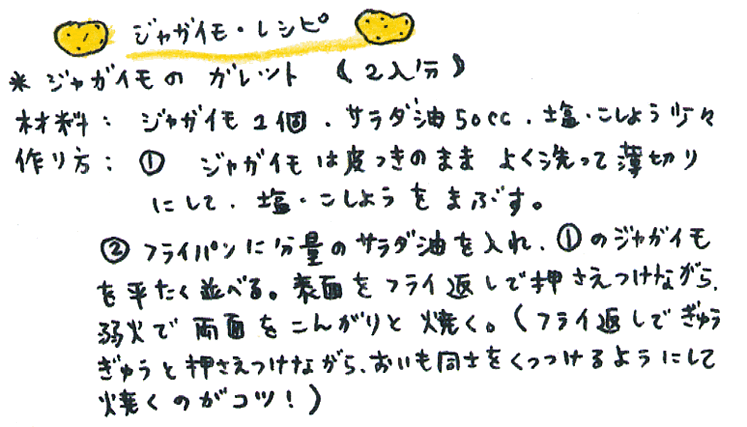 ジャガイモ・レシピ
* ジャガイモの ガレット (2人分)
材料: ジャガイモ2個、サラダ油50cc、塩・こしょう少々
作り方: ① ジャガイモは皮つきのまま よく洗って薄切り
にして、塩・こしょうをまぶす。
② フライパンに分量のサラダ油を入れ、①のジャガイモ
を平たく並べる。表面をフライ返しで押さえつけながら、
弱火で両面をこんがりと焼く。(フライ返しでぎゅう
ぎゅうと押さえつけながら、おいも同士をくっつけるようにして
焼くのがコツ!)